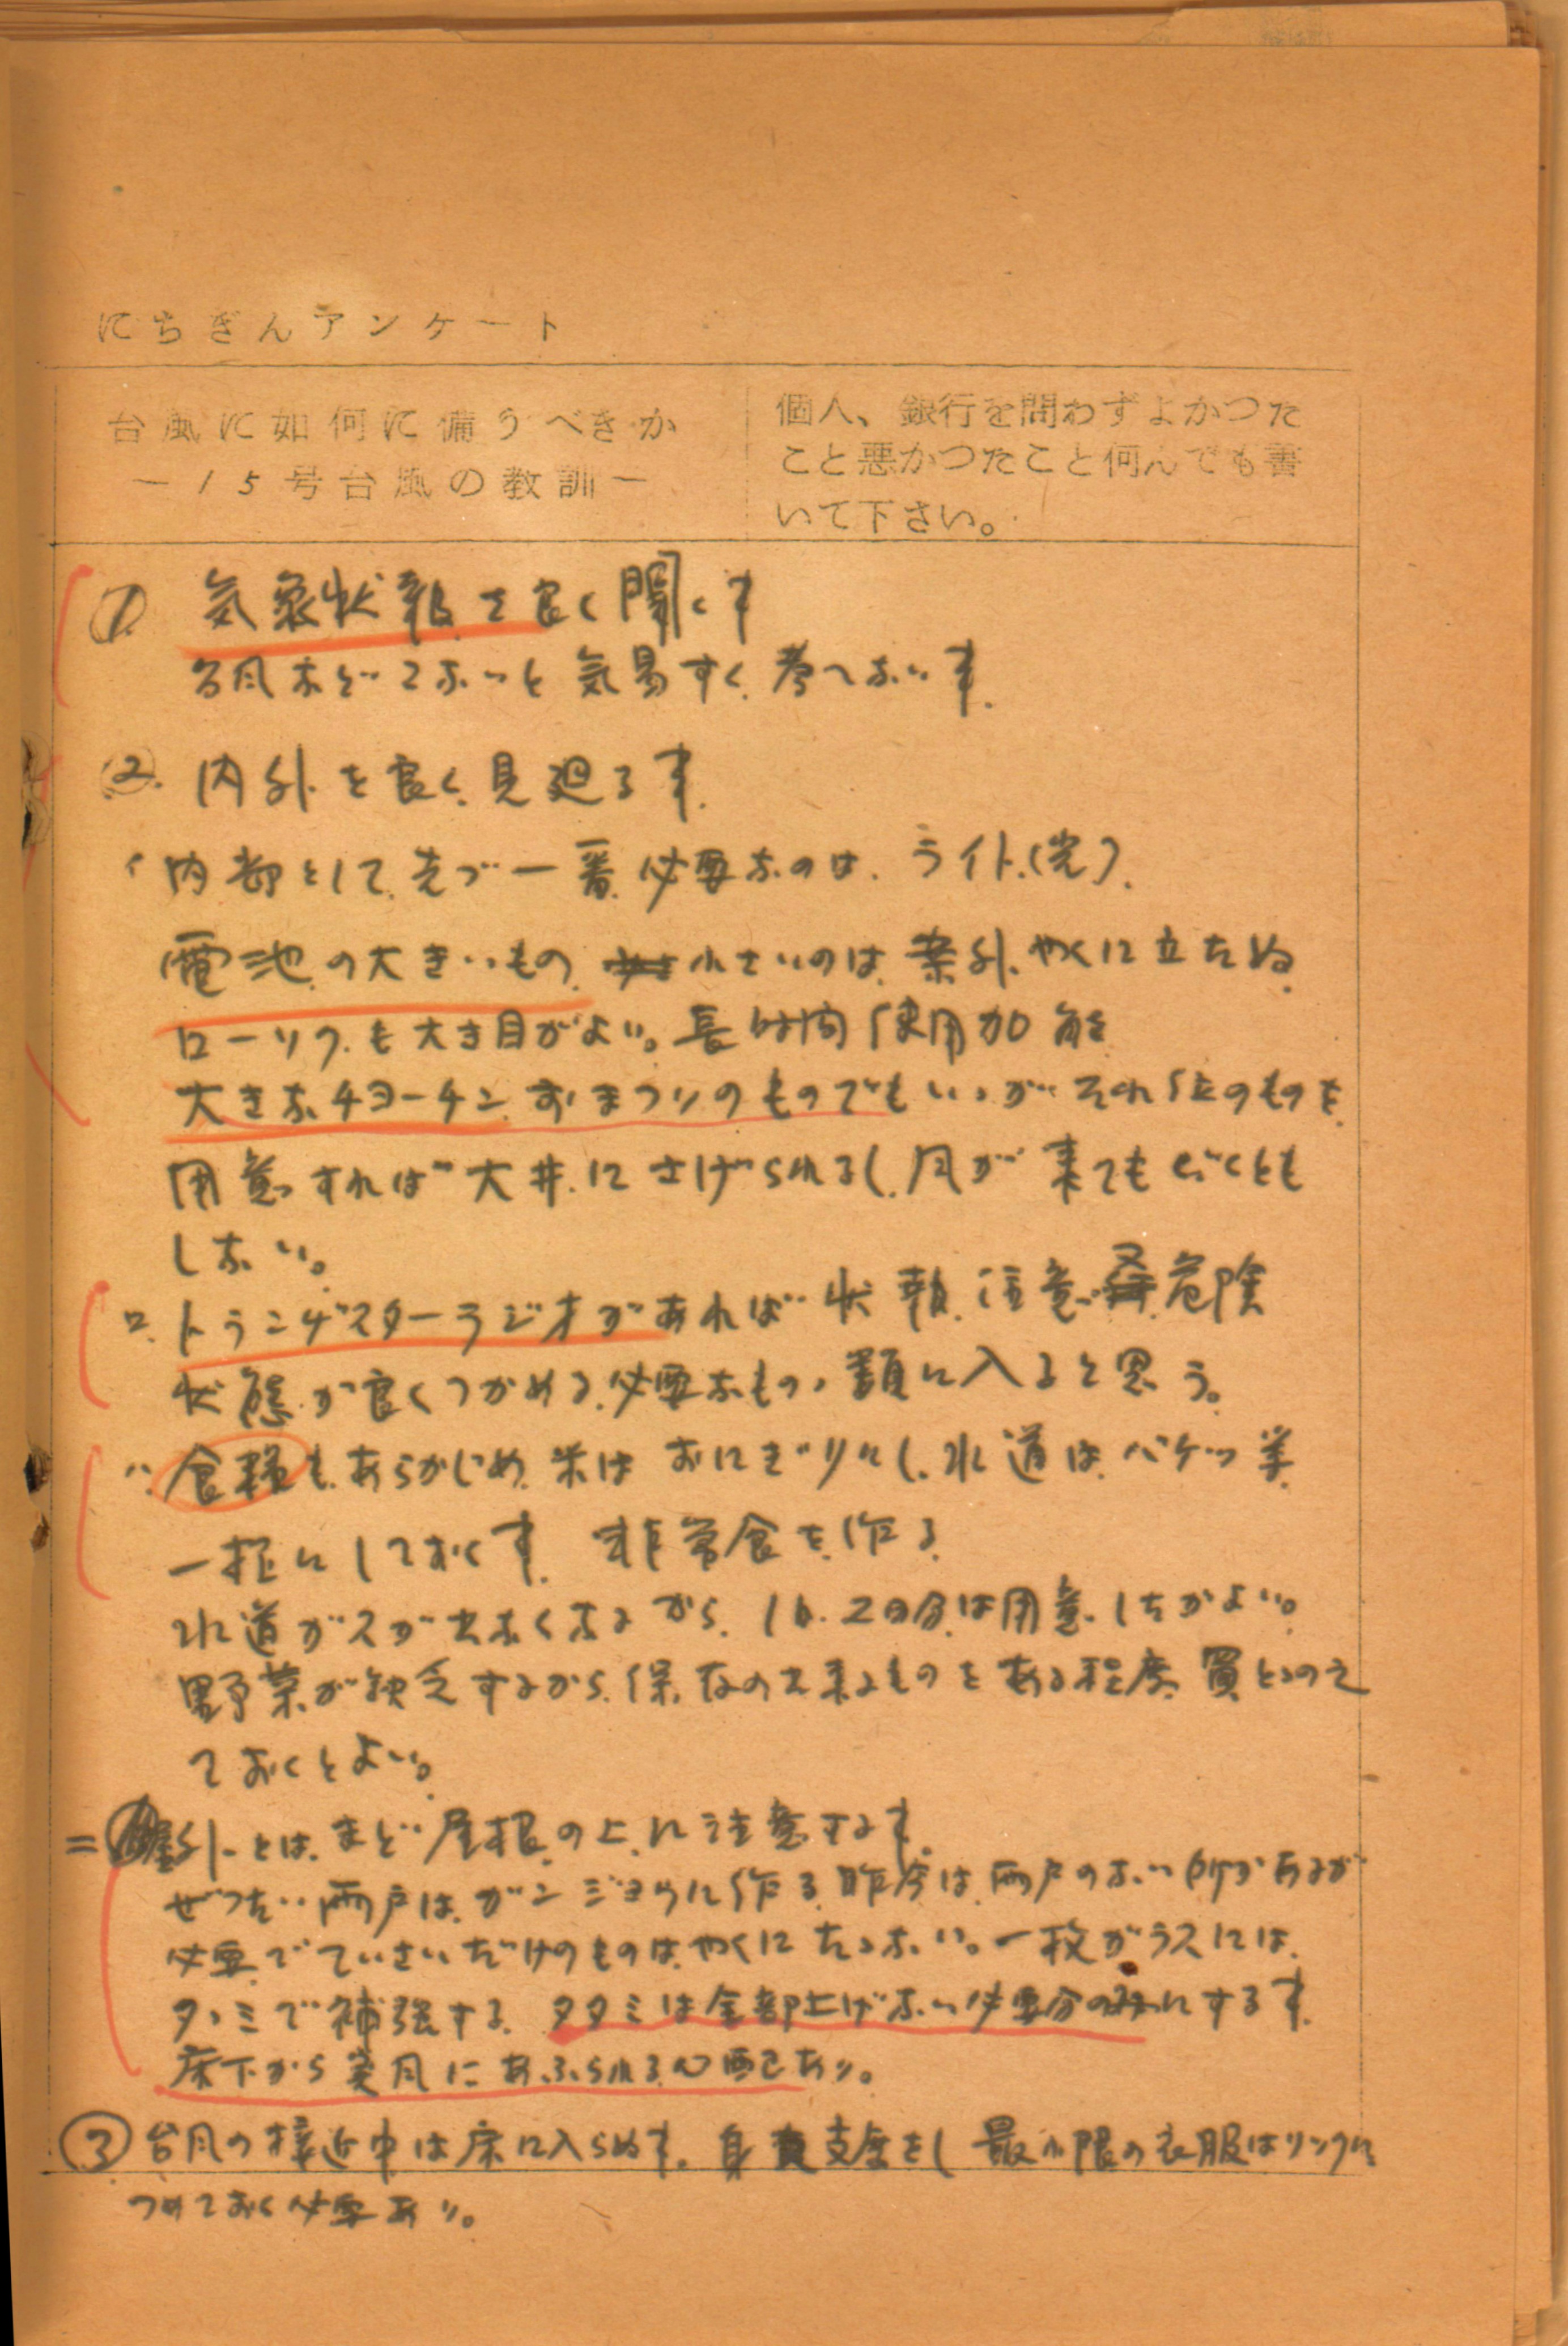 にちぎんアンケート
台風に如何に備うべきか
ー15号台風の教訓ー
個人、銀行を問わずよかつた
こと悪かつたこと何んでも書
いて下さい。
① 気象状報を良く聞く事
台風などこないと気易すく考へない事.
②. 内外を良く見廻る事.
イ 内部として先づ一番必要なのは、ライト(光).
電池の大きいもの. 小さいのは案外やくに立たぬ.
ローソクも大き目がよい。長時間使用加能
大きなチヨーチンおまつりのものでもいゝがそれ位のものを
用意すれば大井にさげられるし、風が来てもビクとも
しない。
ロ. トランヂスターラジオがあれば状報、注意又危険
状態が良くつかめる.必要なものゝ類に入ると思う。
ハ. 食糧もあらかじめ米はおにぎりにし、水道はバケツ等
一杯にしておく事. 非常食を作る.
水道ガスが出なくなるから、1日.2日分は用意したがよい。
野菜が缺乏するから、保存の出来るものをある程度買とゝのえ
ておくとよい。
ニ 屋外とは、まど屋根の上に注意する事.
ぜつたい雨戸はガンジヨウに作る.昨今は雨戸のない所があるが
必要でていさいだけのものはやくにたゝない。一枚ガラスには、
タゝミで補強する. タタミは全部上げない必要分のみにする事.
床下から突風にあふられる心配あり。
③ 台風の接近中は床に入らぬ事。身支度をし最小限の衣服はリツクに
つめておく必要あり。